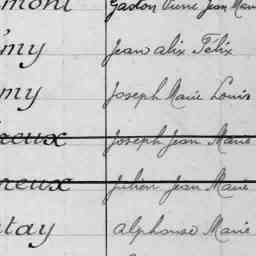 mont Gaston Pierre Jean Marie
my Jean alix Félix
my Joseph Marie Louis
reux Joseph Jean Marie
neux Julien Jean Marie
tay alphonse Marie